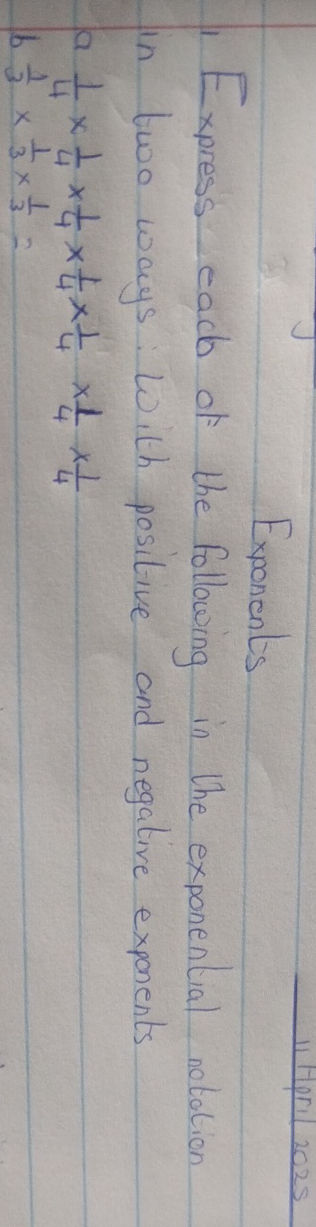 11 April 2025
Exponents
1 Express each of the following in the exponential notation
in two ways: With positive and negative exponents
a 1/4 × 1/4 × 1/4 × 1/4 × 1/4 × 1/4 × 1/4
b 1/3 × 1/3 × 1/3 =